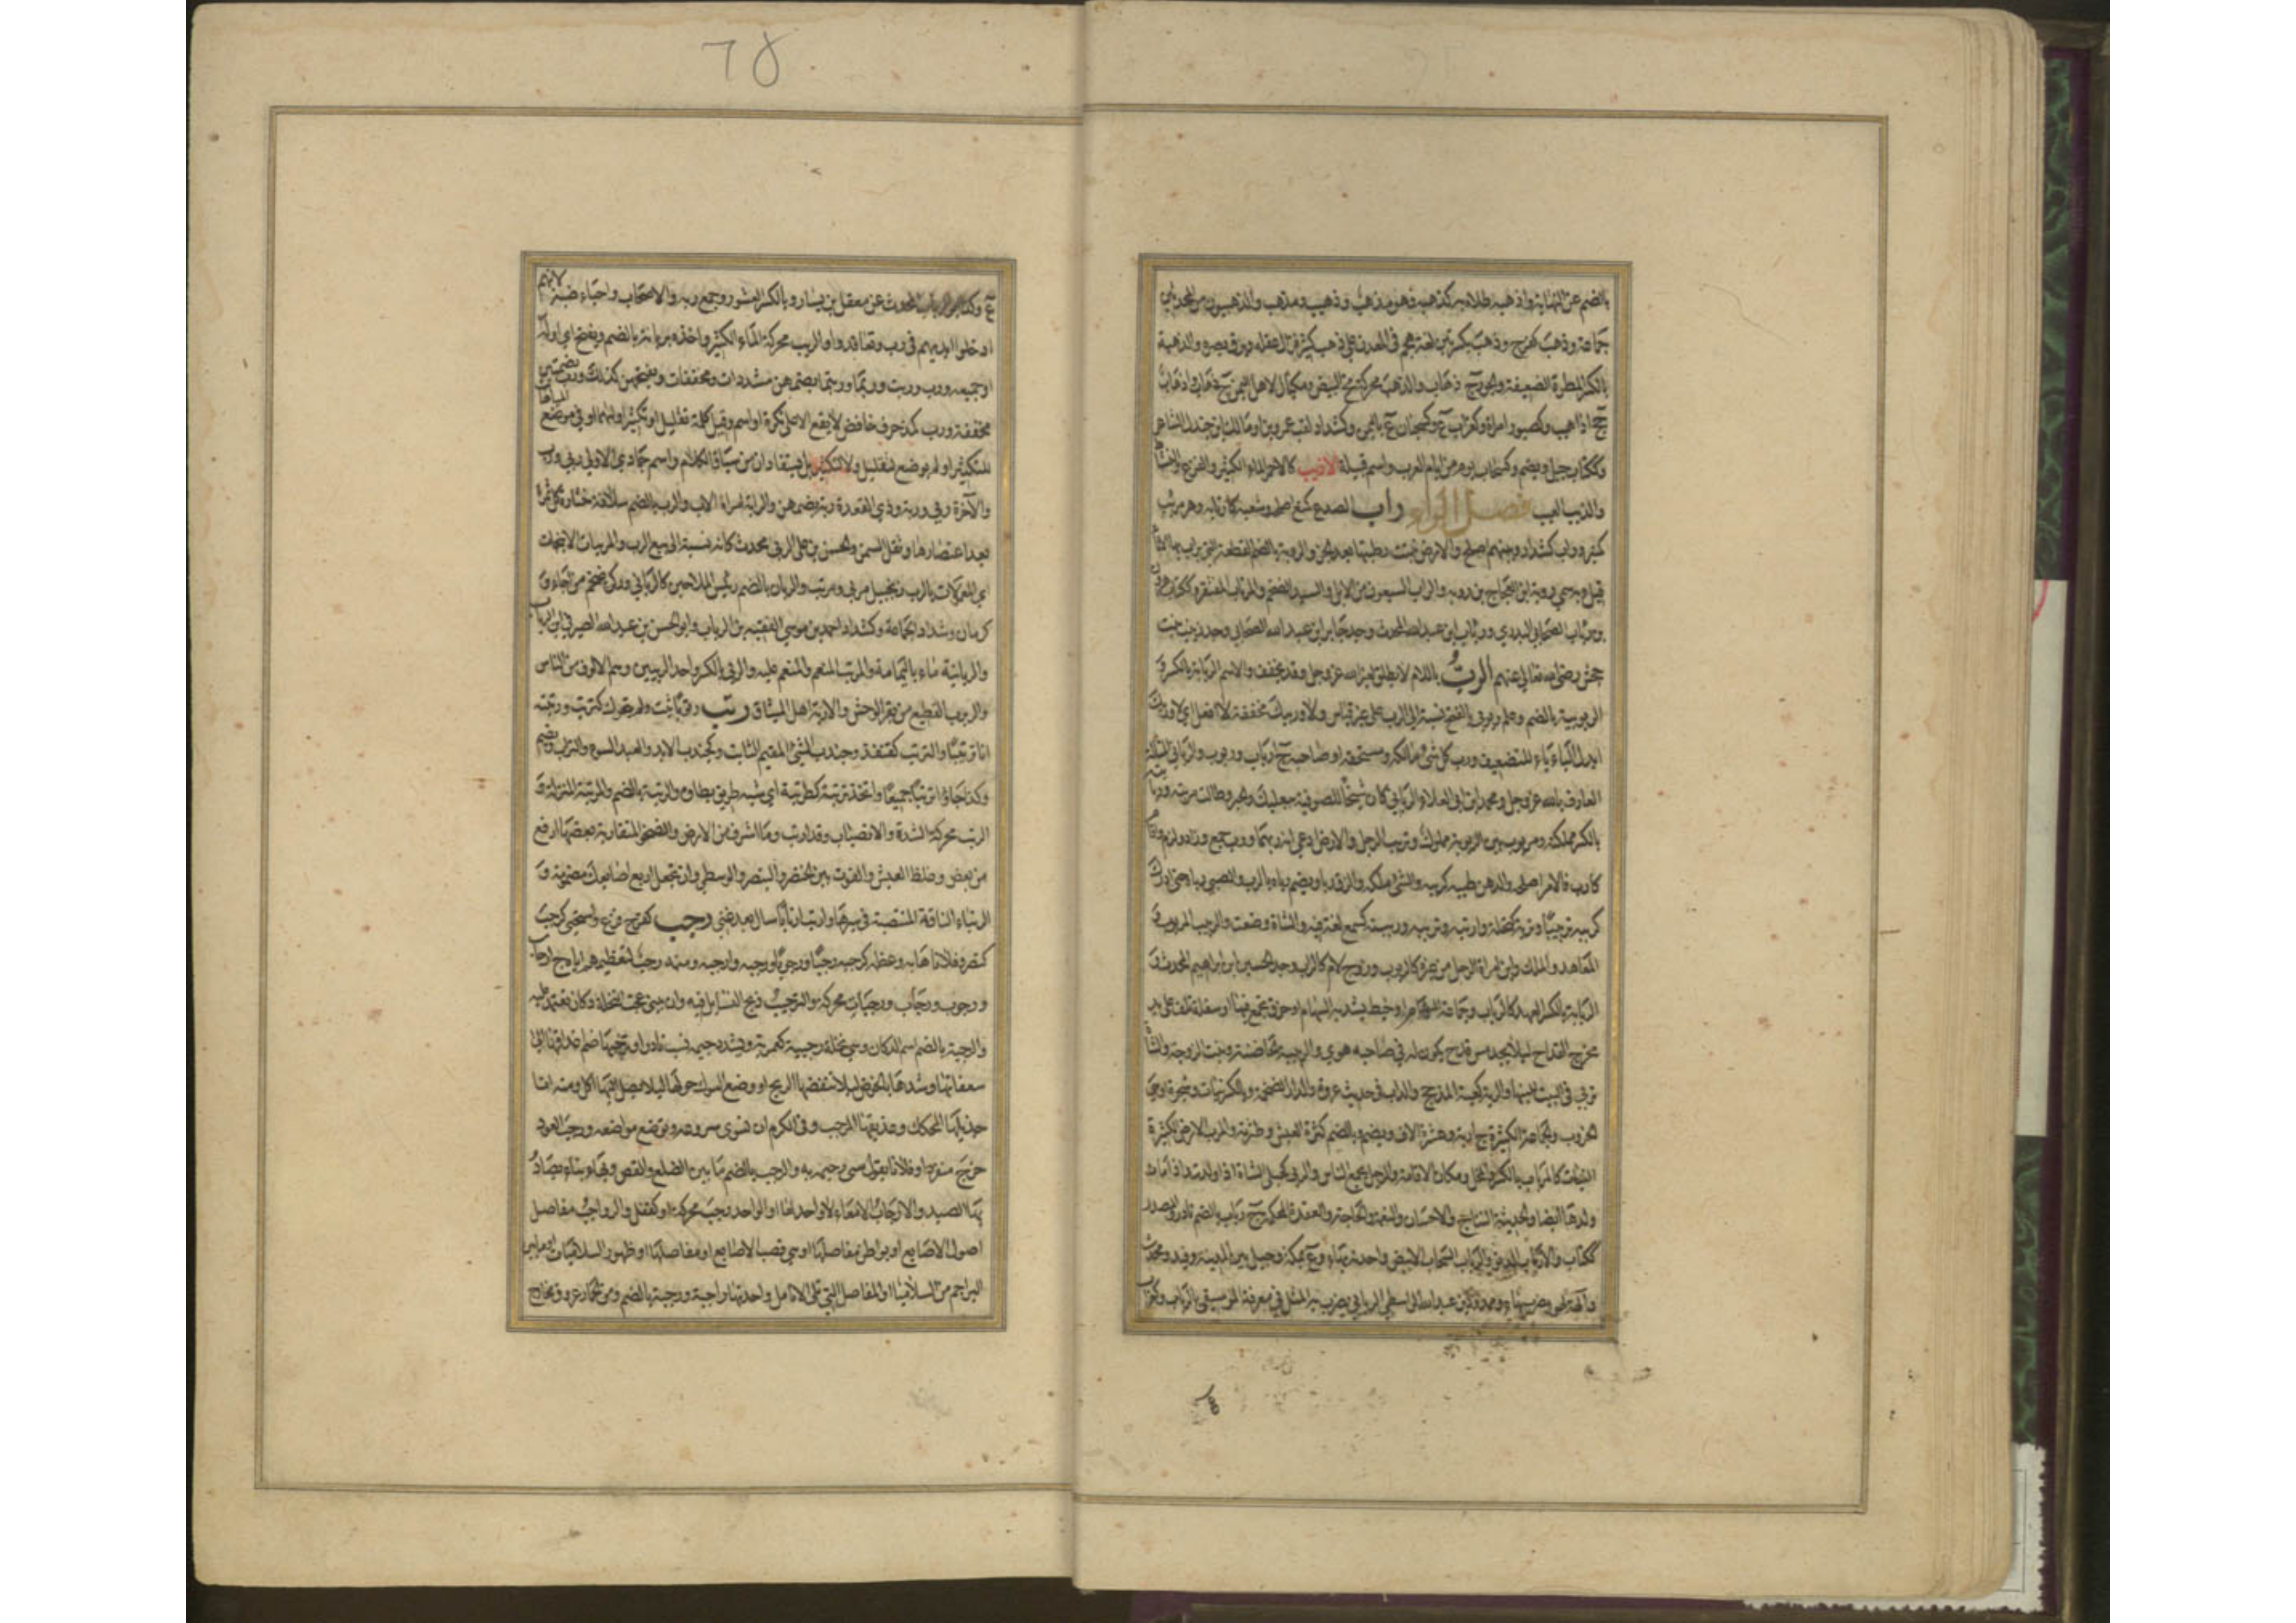 بالضم عن النهاية واذهبه طلاه به كذهبه فهو مذهب وذهيب ومذهب والذهبيون من المحدثين
جماعة وذهب كفرح وذهب بكسرتين لغة هجم في المعدن على ذهب كثير فزال عقله وبرق بصره والذهبة
بالكسر المطرة الضعيفة والجود ج ذهاب والذهب محركة مح البيض ومكيال لاهل اليمن ج ذهاب واذهاب
جج اذاهب وكصبور امراة وكغراب ع وكسحبان ع باليمن وكشداد لقب عمرو بن او مالك ابن جندل الشاعر
وككتاب جبل ويضم وكسحاب يوم من ايام العرب واسم قبيلة الاذيب كالاحمر الماء الكثير والفزع والنشاط
والذيب العيب فصل الراء راب الصدع كمنع اصلحه وشعبه كارتابه وهو مرئب
كمنبر وراب كشداد وبينهم اصلح والارض نبت رطبتها بعد الجز والروبة بالضم القطعة التي يراب بها الاناء
قيل وبه سمي روبة ابن العجاج بن روبة والراب السبعون من الابل والسيد الضخم والمرتاب المغتفر وككتاب هرون
بن رئاب الصحابي البدري ورئاب ابن عبد الله المحدث وجد جابر ابن عبد الله الصحابي وجد زينب بنت
جحش رضي الله تعالى عنهم الرب باللام لا يطلق لغير الله عز وجل وقد يخفف والاسم الربابة بالكسر و
الربوبية بالضم وعلم ربوبي بالفتح نسبة الى الرب على غير قياس ولا وربيك مخففة لا افعل اي لا وربك
ابدل الباء ياء للتضعيف ورب كل شئ مالكه ومستحقه او صاحبه ج ارباب وربوب والرباني المتاله
العارف بالله عز وجل ومحمد ابن ابي العلاء الرباني كان شيخا للصوفية ببعلبك والحبر وطالت مربته وربابته
بالكسر مملكته ومربوب بين الربوبة مملوك وتربب الرجل والارض ادعى انه ربهما ورب جمع وزاد ولزم واقام
كارب والامر اصلحه والدهن طيبه كرببه والشئ ملكه والزق ربا ويضم رباه بالرب والصبي رباه حتى ادرك
كرببه تربيبا وتربة كتحلة وارتبه وترببه وربيته كسمع لغة فيه والشاة وضعت والربيب المربوب و
المعاهد والملك وابن امراة الرجل من غيره كالربوب وزوج لام كالراب وجد الحسين ابن ابراهيم المحدث و
الربابة بالكسر العهد كالرباب وجماعة السهام او خيط يشد به السهام او خرقة تجمع فيها او سلفة تلف على يد
مخرج القداح ليلا يجد مس قدح يكون له في صاحبه هوى والربيبة الحاضنة وبنت الزوجة والشاة
تربى في البيت للبنها والربة كعبة لمذحج واللات في حديث عروة والدار الضخمة وبالكسر نبات وشجرة او هي
الخروب والجماعة الكثيرة ج اربة وعشرة الاف ويضم وبالضم كثرة العيش وطثرته والمرب الارض الكثيرة
النبات كالمرباب بالكسر والمحل ومكان الاقامة والرجل يجمع الناس والربى كحبلى الشاة اذا ولدت واذا مات
ولدها ايضا والحديثة النتاج والاحسان والنعمة والحاجة والعقدة المحكمة ج رباب بالضم نادر والمصدر
ككتاب والارباب الدنو والرباب السحاب الابيض واحدته بهاء وع بمكة وجبل بين المدينة وفيد ومحدث
وآلة لهو يضرب بها وممدود بن عبد الله الواسطي الربابي يضرب به المثل في معرفة الموسيقى بالرباب وكغراب
ع وكذا ابو الرباب المحدث عن معقل بن يسار وبالكسر العشور وجمع ربة والاصحاب واحياء ضبة لانهم
ادخلوا ايديهم في رب وتعاقدوا والربب محركة الماء الكثير واخذه بربانه بالضم ويفتح اي اوله
او جميعه ورب وربت وربما وربتما بضمهن مشددات ومخففات وبفتحهن كذلك ورب بضمتين
مخففة ورب كمذ حرف خافض لا يقع الا على نكرة او اسم وقيل كلمة تقليل او تكثير او لهما او في موضع المباهاة
للتكثير او لم يوضع لتقليل ولا لتكثير بل يستفادان من سياق الكلام واسم جمادي الاولى ربى ورب
والآخرة ربى وربة وذي القعدة ربة بضمهن والرابة امراة الاب والرب بالضم سلافة خثارة كل ثمرة
بعد اعتصارها وثفل السمن والحسن بن علي الربي محدث كانه نسبة الى بيع الرب والمربيات الانبجات
اي المعمولات بالرب وزنجبيل مربى ومربب والربان بالضم رئيس الملاحين كالرباني وركن ضخم من اجاء و
كرمان وشداد الجماعة وكشداد احمد بن موسى الفقيه بن الرباب وابو الحسن بن عبد الله الصيرفي ابن الرباب
والربانية ماء باليمامة والمربب المنعم والمنعم عليه والربي بالكسر واحد الربيين وهم الالوف من الناس
والربرب القطيع من بقر الوحش والاربة اهل الميثاق رتب رتوبا ثبت ولم يتحرك كترتب ورتبته
انا ترتيبا والترتب كقنفذ وجندب الشئ المقيم الثابت وكجندب الابد والعبد السوء والتراب ويضم
وكذا جاؤا ترتبا جميعا واتخذ ترتبة كطرطبة اي شبه طريق يطاوه والرتبة بالضم والمرتبة المنزلة و
الرتب محركة الشدة والانصباب وقد ارتب وما اشرف من الارض والصخور المتقاربة بعضها ارفع
من بعض وغلظ العيش والفوت بين الخنصر والبنصر والوسطى وان تجعل اربع اصابعك مضمومة و
الرتباء الناقة المنتصبة في سيرها وارتب ارتابا سال بعد غنى رجب كفرح فزع واستحيى كرجب
كنصر وفلانا هابه وعظمه كرجبه رجبا ورجوبا ورجبه وارجبه ومنه رجب لتعظيمهم اياه ج ارجاب
ورجوب ورجاب ورجبات محركة والترجيب ذبح النسايل فيه وان يبنى تحت النخلة دكان تعتمد عليه
والرجبة بالضم اسم الدكان وهي نخلة رجبية كعمرية وتشدد جيمه نسب نادر او ترجيبها ضم اعذاقها الى
سعفاتها وشدها بالخوص ليلا ينفضها الريح او وضع الشوك حولها ليلا يصل اليها اكل ومنه انا
جذيلها المحكك وعذيقها المرجب وفي الكرم ان تسوى سروغه ويوضع مواضعه ورجب العود
خرج منفردا وفلانا بقول سيئ رجمه به والرجب بالضم ما بين الضلع والقص وبهاء بناء يصاد
بها الصيد والارجاب الامعاء لا واحد لها او الواحد رجب محركة او كقفل والرواجب مفاصل
اصول الاصابع او بواطن مفاصلها او هي قصب الاصابع او مفاصلها او ظهور السلاميات او ما بين
البراجم من السلاميا او المفاصل التي تلي الانامل واحدتها راجبة ورجبة بالضم ومن الحمار عروق مخارج